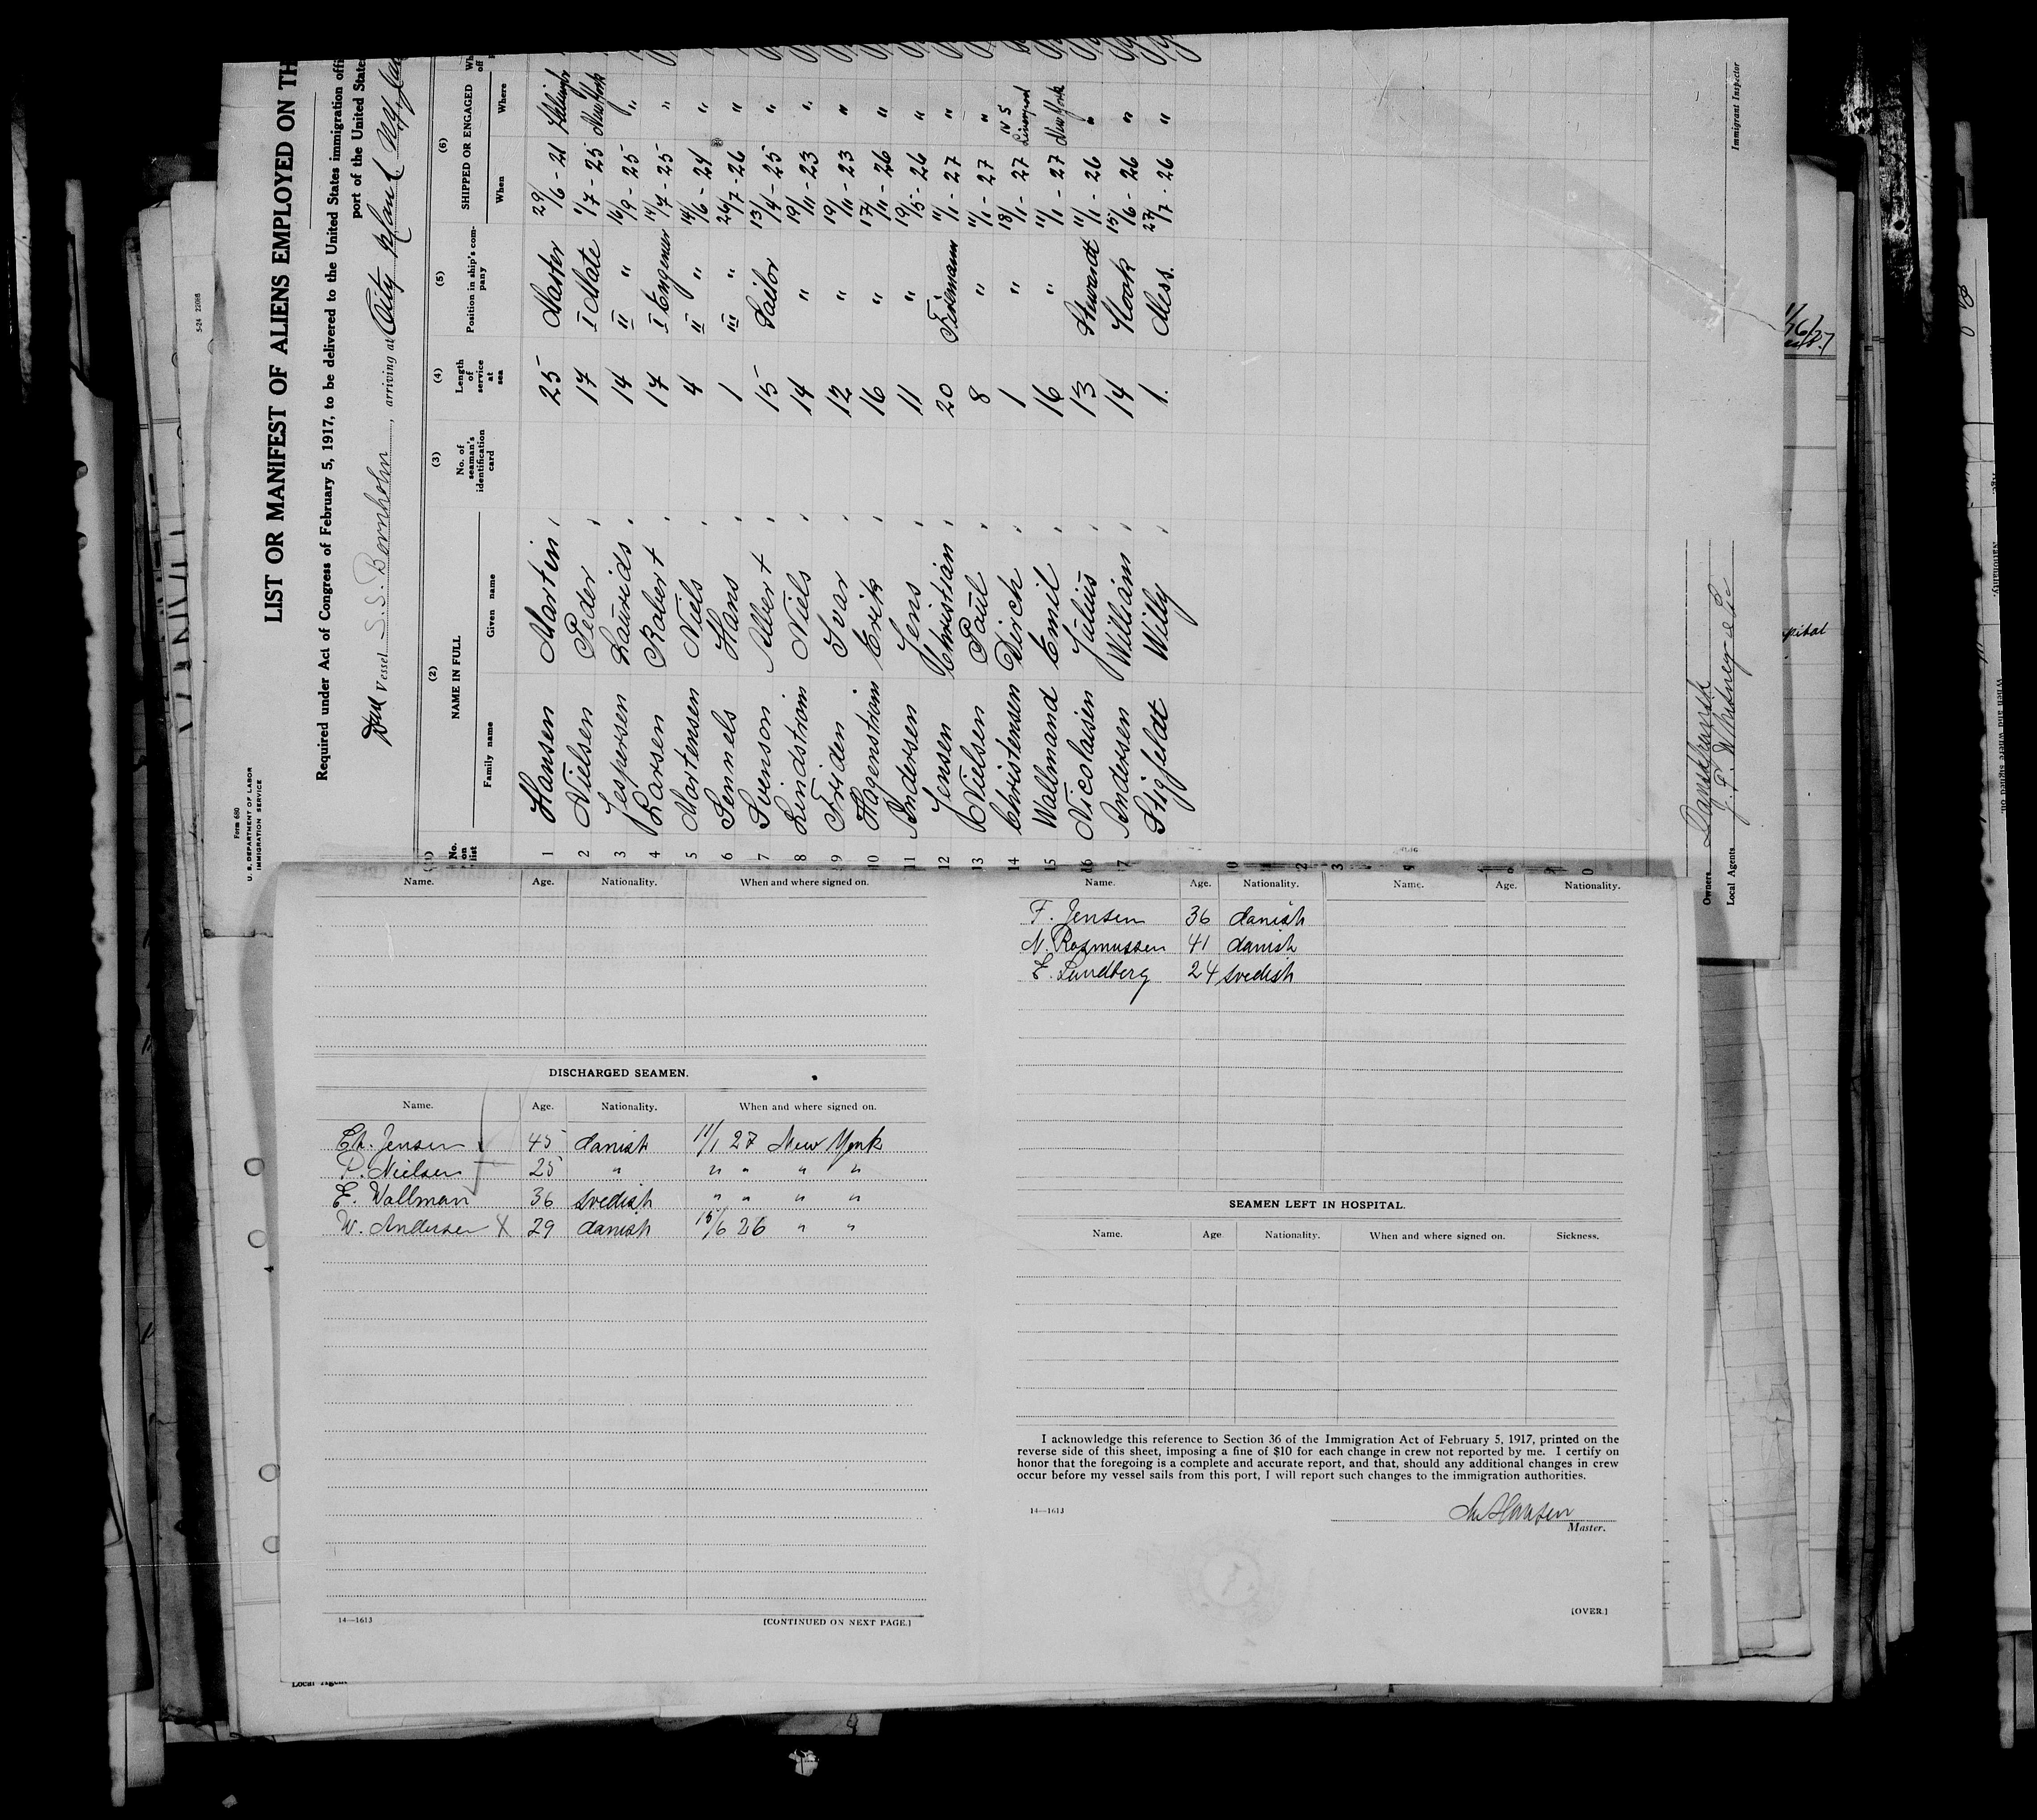 Form 680
U. S. DEPARTMENT OF LABOR
IMMIGRATION SERVICE
LIST OR MANIFEST OF ALIENS EMPLOYED ON TH
Required under Act of Congress of February 5, 1917, to be delivered to the United States immigration offi
port of the United State
Vessel S.S. Bornholm, arriving at
(1) (2) (3) (4) (5) (6)
No. on list NAME IN FULL No. of seaman's identification card Length of service at sea Position in ship's company SHIPPED OR ENGAGED
Family name Given name When Where
1 Hansen Martin 25 Master 29/6 - 21
2 Nielsen Peder 17 I Mate 1/7 - 25 New York
3 Jespersen Laurids 14 II " 16/9 - 25 "
4 Larsen Robert 17 I Engeneer 14/7 - 25 "
5 Mortensen Niels 4 II " 14/6 - 24 "
6 Semmels Hans 1 III " 26/7 - 26 "
7 Svenson Albert 15 Sailor 13/4 - 25 "
8 Lindström Niels 14 " 19/11 - 23 "
9 Friden Ivar 12 " 19/11 - 23 "
10 Hagenström Erik 16 " 17/11 - 26 "
11 Andersen Jens 11 " 19/5 - 26 "
12 Jensen Christian 20 Firemann 11/1 - 27 "
13 Nielsen Paul 8 " 11/1 - 27 "
14 Christensen Dirch 1 " 18/1 - 27
15 Wallmand Emil 16 " 11/1 - 27 New York
16 Nicolaisen Julius 13 Stewardt 11/1 - 26 "
17 Andersen William 14 Kook 15/6 - 26 "
Stigfeldt Willy 1. Mess. 27/7 - 26 "
Owners Dansk
Local Agents J. F. Whitney & Co
Immigrant Inspector
5-24 22098
Name. Age. Nationality. When and where signed on.
DISCHARGED SEAMEN.
Name. Age. Nationality. When and where signed on.
Ch. Jensen 45 danish 11/1 27 New York
P. Nielsen 25 " " " " "
E. Wallman 36 svedish " " " "
W. Andersen X 29 danish 15/6 26 " "
14—1613 [CONTINUED ON NEXT PAGE.]
Name. Age. Nationality. Name. Age. Nationality.
F. Jensen 36 danish
N. Rasmussen 41 danish
E. Lundberg 24 svedish
SEAMEN LEFT IN HOSPITAL.
Name. Age Nationality. When and where signed on. Sickness.
I acknowledge this reference to Section 36 of the Immigration Act of February 5, 1917, printed on the
reverse side of this sheet, imposing a fine of $10 for each change in crew not reported by me. I certify on
honor that the foregoing is a complete and accurate report, and that, should any additional changes in crew
occur before my vessel sails from this port, I will report such changes to the immigration authorities.
14—1613
M Hansen
Master.
[OVER.]